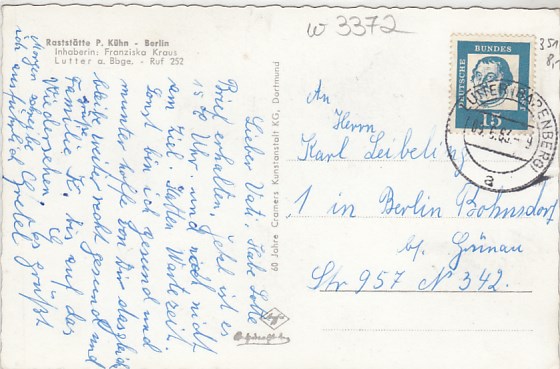 Raststätte P. Kühn - Berlin
Inhaberin: Franziska Kraus
Lutter a. Bbge. - Ruf 252
w 3372
351
8,-
DEUTSCHE BUNDESPOST
15
LUTTER (BARENBERG)
a
60 Jahre Cramers Kunstanstalt KG, Dortmund
An
Herrn
Karl Leibeling
1 in Berlin Bohnsdorf
b/ Grünau
Str 957 № 342.
Lieber Vati, Habe
Brief erhalten. Jetzt ist es
15 Uhr. und noch nicht
am Ziel. Hatten Wartezeit.
Sonst bin ich gesund und
munter hoffe von Dir dasgleiche
bleibe weiter recht gesund und
Familie K. bis auf das
Wiedersehen. Es grüßt
Gretel
Morgen schreibe
ich ausführlich